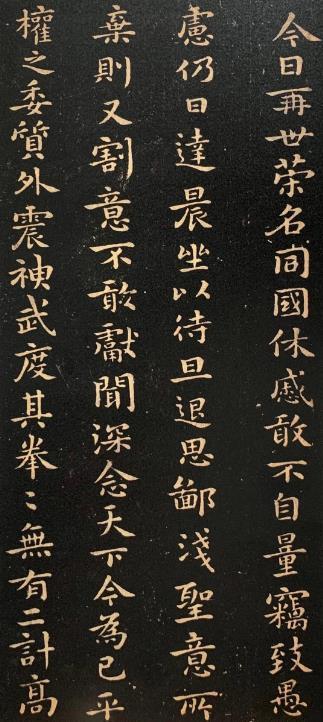 今日再世荣名同國休慼敢不自量竊致愚
慮仍日達晨坐以待旦退思鄙淺聖意所
棄則又割意不敢獻聞深念天下今為已平
權之委質外震神武度其拳〻無有二計高